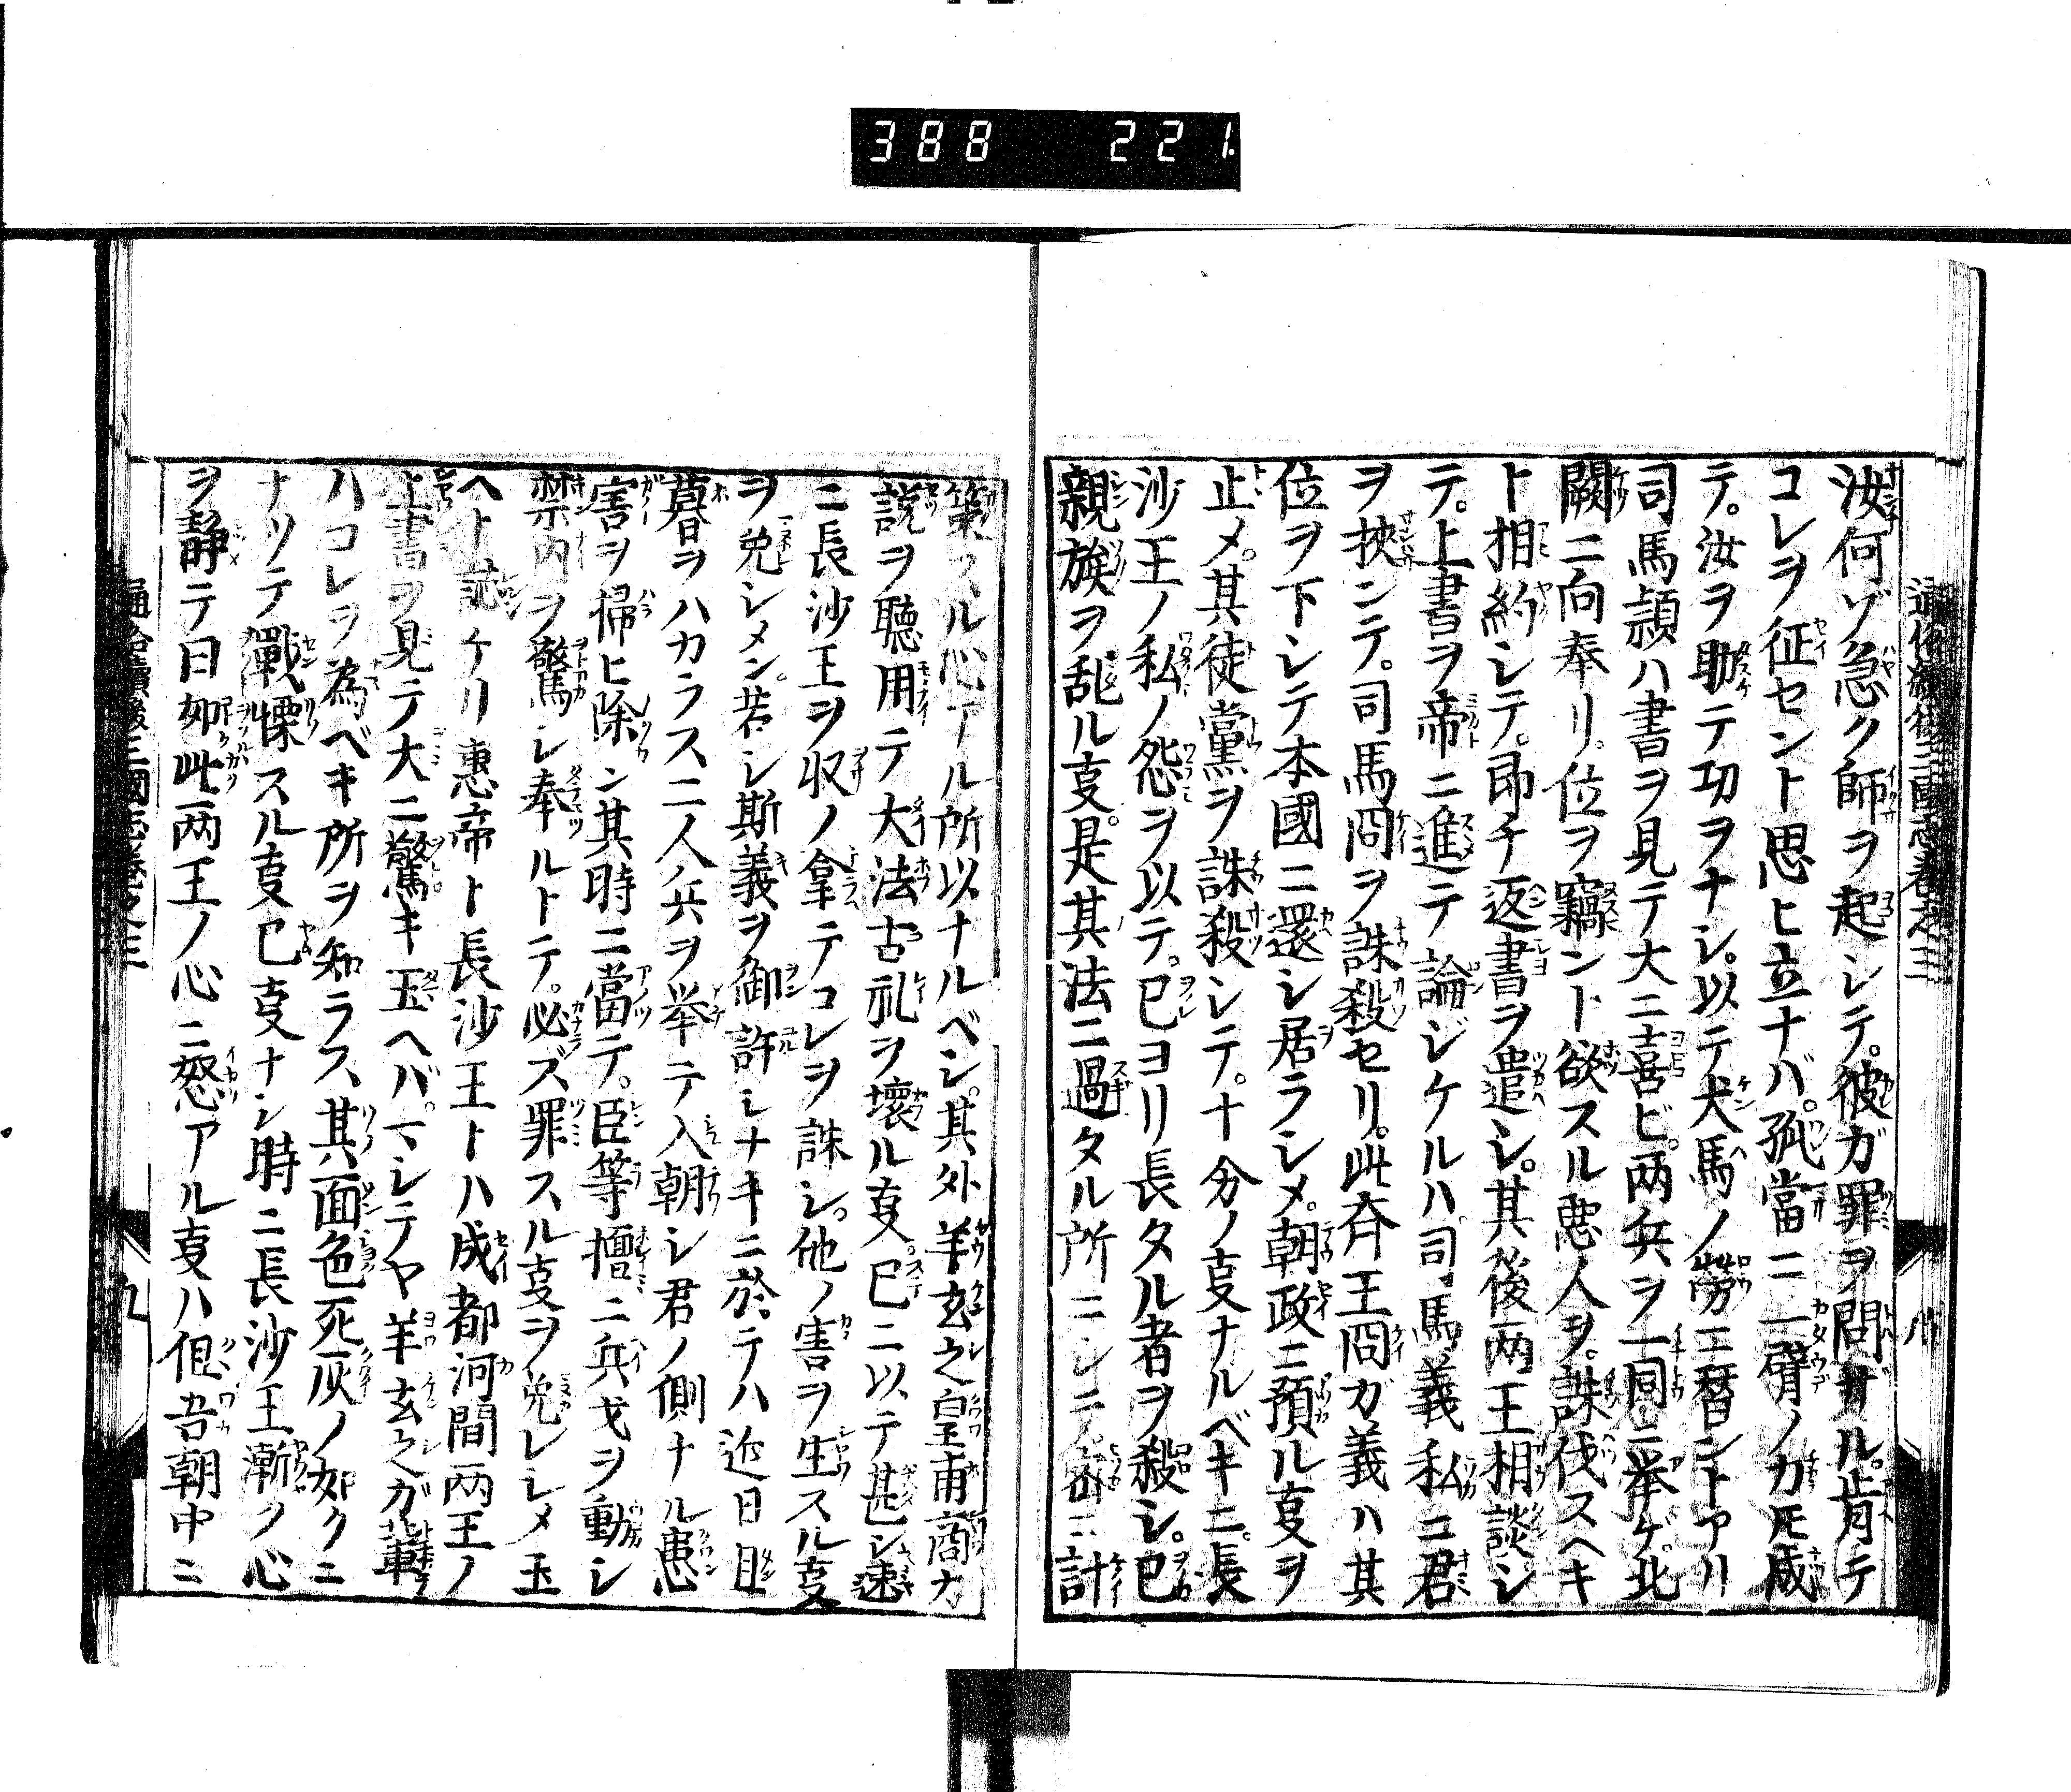 388 221
汝何ゾ急ク師ヲ起シテ。彼ガ罪ヲ問ザル。肯テ
コレヲ征セント思ヒ立ナバ。孤當ニ一臂ノ力モ戚
テ。汝ヲ助テ功ヲナシ。以テ犬馬ノ勞ニ替ントアリ
司馬頴ハ書ヲ見テ大ニ喜ビ。两兵ヲ一同ニ举ゲ。北
闕ニ向奉リ。位ヲ竊ント欲スル惡人ヲ。誅伐スヘキ
ト相約シテ。即チ返書ヲ遣シ。其後两王相談シ
テ。上書ヲ帝ニ進テ論ジケルハ。司馬義私ニ君
ヲ挾ンテ。司馬冏ヲ誅殺セリ。此斉王冏ガ義ハ其
位ヲ下シテ本國ニ還シ居ラシメ。朝政ニ預ル叓ヲ
止メ。其徒黨ヲ誅殺シテ。十分ノ叓ナルベキニ。長
沙王ノ私ノ怨ヲ以テ。已ヨリ長タル者ヲ殺シ。已
親族ヲ乱ル叓。是其法ニ過タル所ニシニ密ニ計
策ル心アル所以ナルベシ。其外羊玄之皇甫商カ
説ヲ聴用テ大法古礼ヲ壊ル叓。已ニ以テ甚シ速
ニ長沙王ヲ収ノ拿テコレヲ誅シ。他ノ害ヲ生スル叓
ヲ免シメン。若シ斯義ヲ御許シナキニ於テハ近日且
暮ヲハカラス二人兵ヲ举テ入朝シ君ノ側ナル患
害ヲ掃ヒ除ン其時ニ當テ。臣等擅ニ兵戈ヲ動シ
禁内ヲ驚シ奉ルトテ。必ズ罪スル叓ヲ免レシメ玉
ヘト記ケリ惠帝ト長沙王トハ成都河間两王ノ
上書ヲ見テ大ニ驚キ玉ヘバ。マシテヤ羊玄之ガ輩
ハコレヲ為ベキ所ヲ知ラス其面色死灰ノ如クニ
ナツテ戰慄スル叓已叓ナシ時ニ長沙王漸ク心
ヲ静テ曰如此两王ノ心ニ怒アル叓ハ但吾朝中ニ